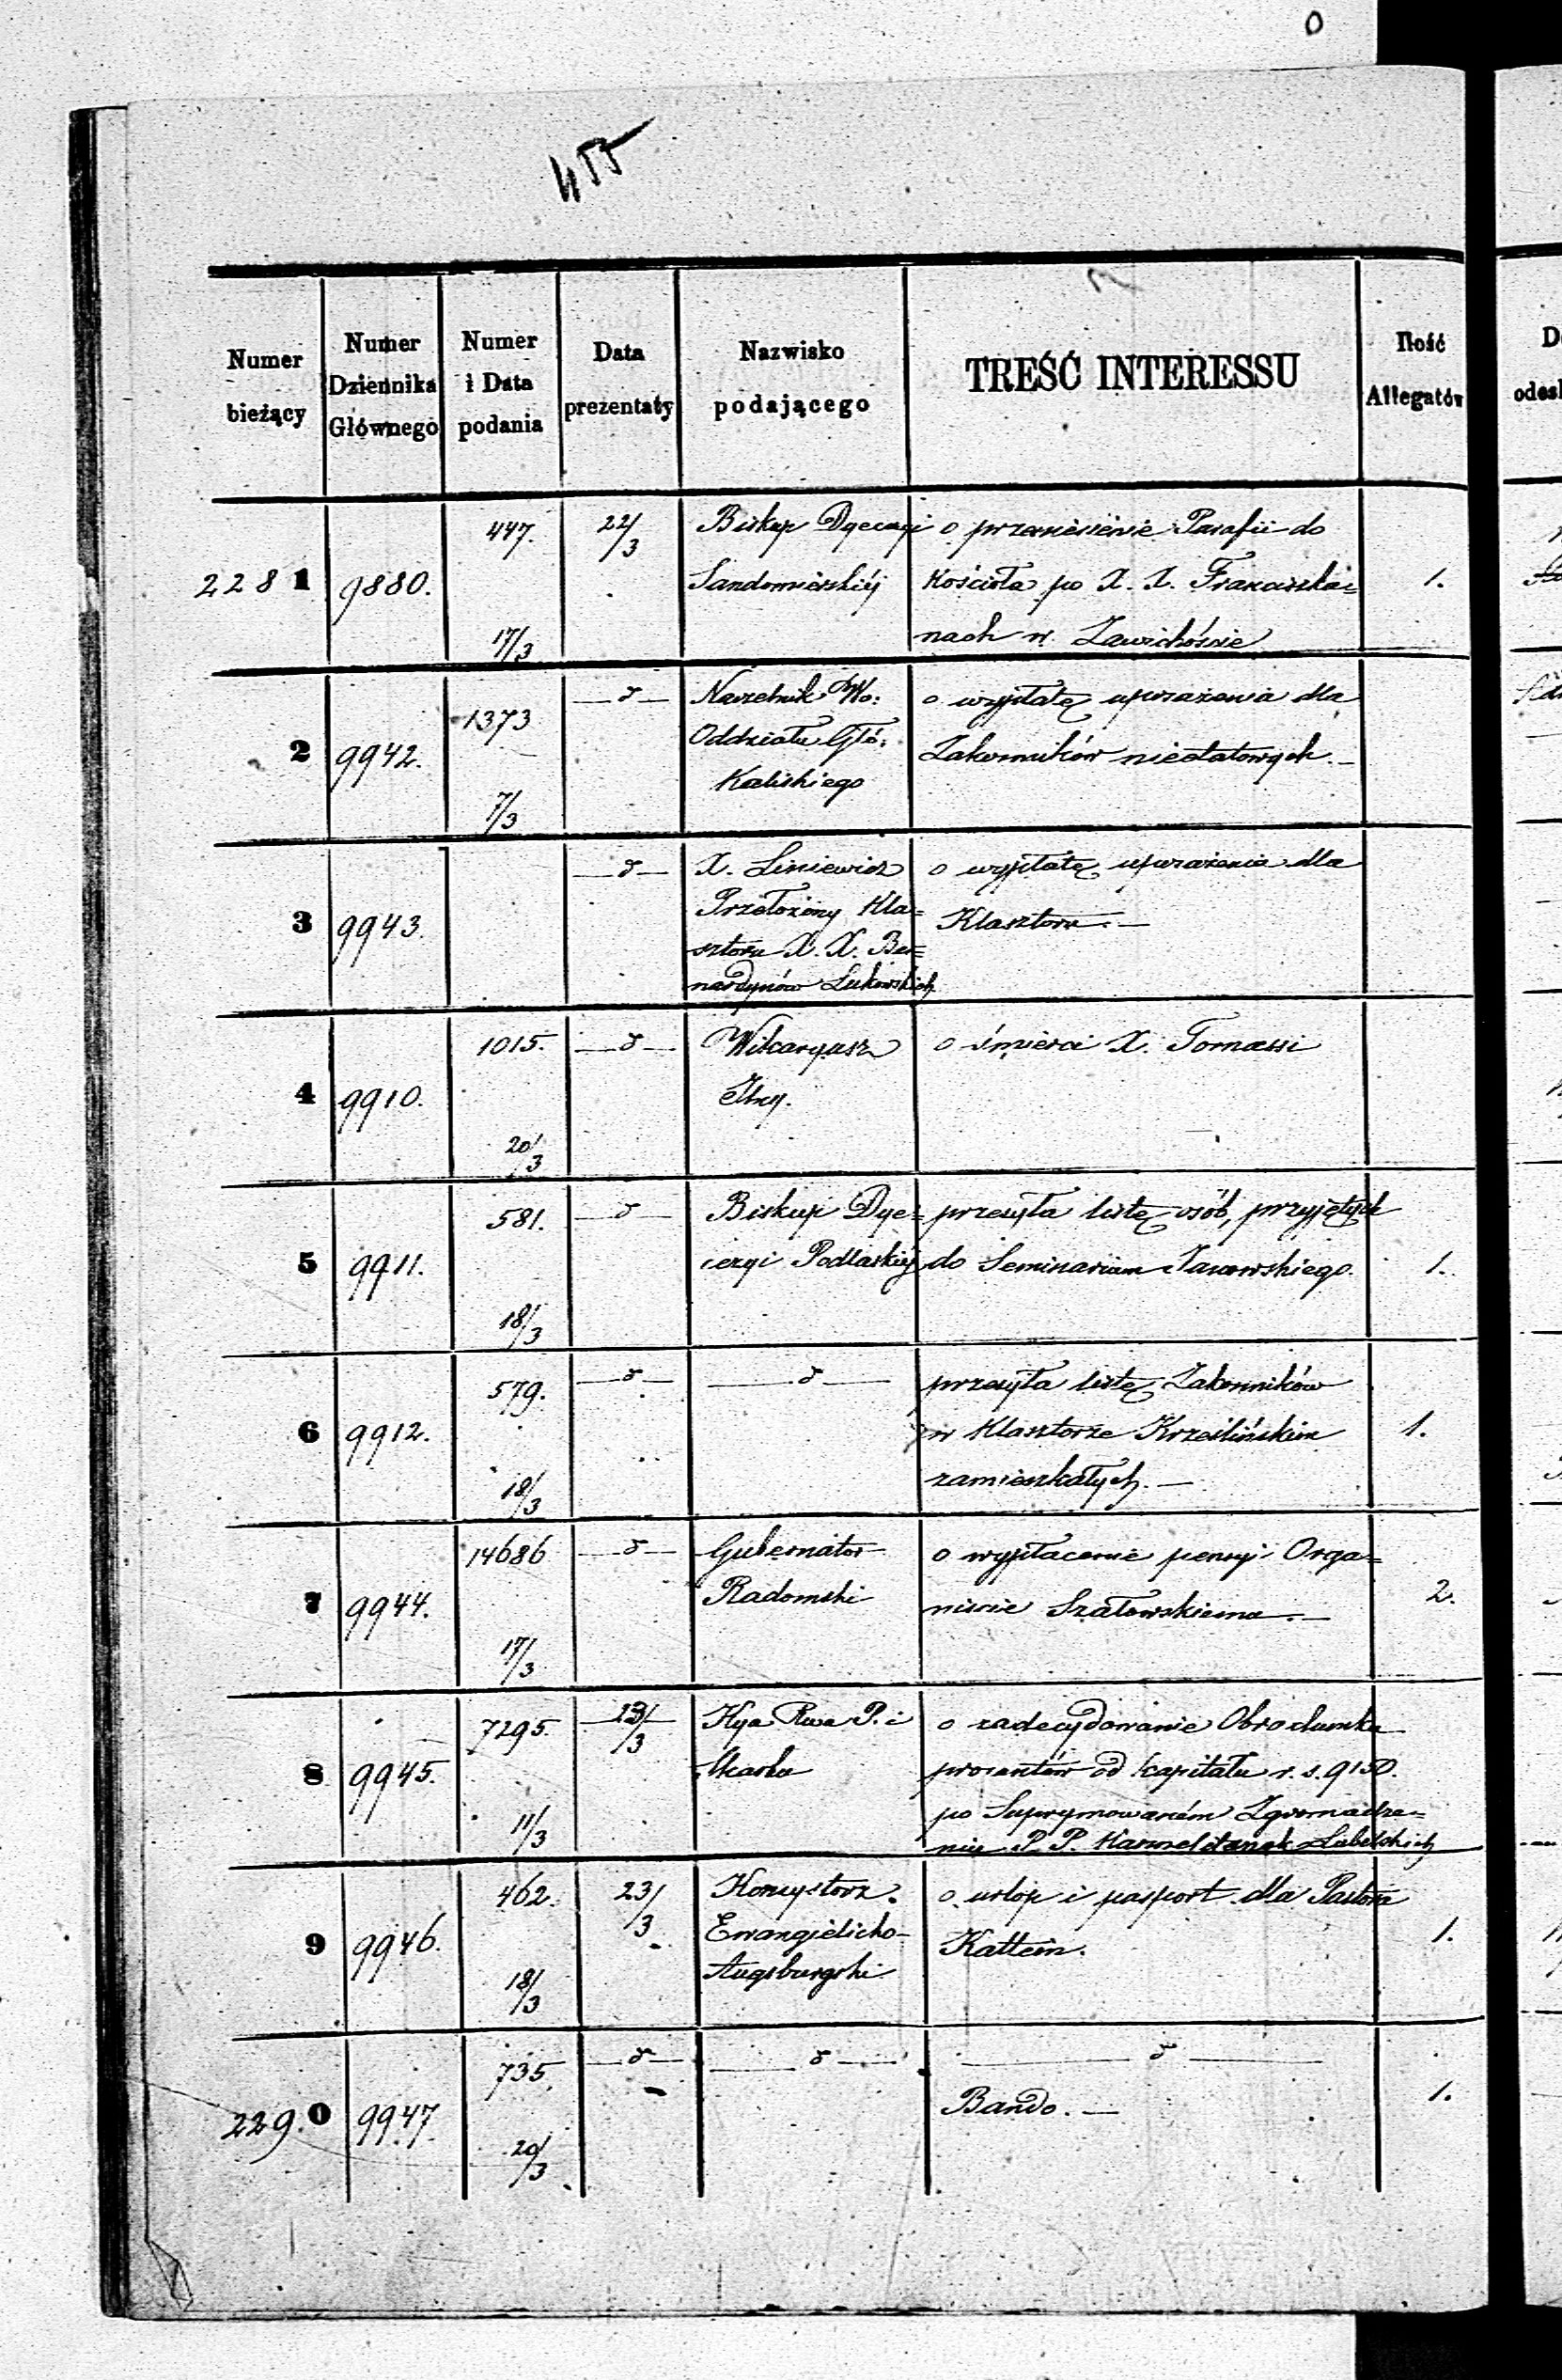 0
455
Numer bieżący
Numer Dziennika Głównego
Numer i Data podania
Data prezentaty
Nazwisko podającego
TREŚĆ INTERESSU
Ilość Allegatów
2281 9880. 447. 17/3 22/3
Biskup Dyecezyi
Sandomierskiéj
o przeniesienie Parafii do
Kościoła po X. X. Franciszka=
nach w Zawichóście
1.
2 9942. 1373 7/3 — d —
Naczelnik Wo:
Oddziału Głó:
Kaliskiego
o wypłatę uposażenia dla
Zakonników nieetatowych. —
3 9943. — d —
X. Liniewicz
Przełożony Kla=
sztoru X. X. Ber=
nardynów Łukowskich
o wypłatę uposażenia dla
Klasztoru. —
4 9910. 1015. 20/3 — d —
Wikaryusz
o śmierci X. Tomassi
5 9911. 581. 18/3 — d —
Biskup Dye=
cezyi Podlaskiéj
przesyła listę osób, przyjętych
do Seminarium Janowskiego.
1.
6 9912. 579. 18/3 — d — — d —
przesyła listę Zakonników
w Klasztorze Krześlińskim
zamieszkałych. —
1.
7 9944. 14686 17/3 — d —
Gubernator
Radomski
o wypłacenie pensyi Orga=
niście Szałowskiemu. —
2.
8 9945. 7295. 11/3 23/3
Kya Rwa P. i
Skarbu
o zadecydowanie Obrachunku
procentów od kapitału r. s. 9150.
po Suprymowaném Zgromadze=
niu P. P. Karmelitanek Lubelskich
9 9946. 462. 18/3 23/3
Konsystorz
Ewangielicko-
Augsburgski
o urlop i pasport dla Pastora
Kattein.
1.
2290 9947. 735. 20/3 — d — — d — — d —
Bando. —
1.